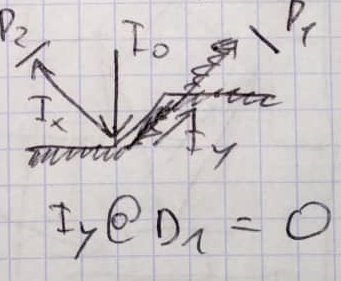 P2 I0 P1
Ix Iy
Iy @ D1 = 0